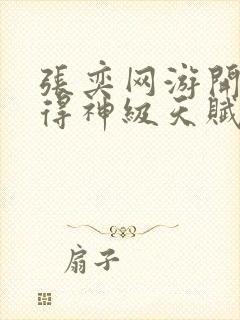 張奕网游開
得神級天賦
扇子